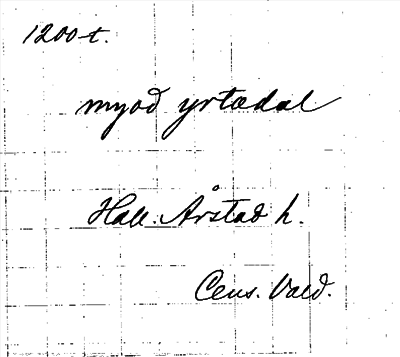 1200-t.
myod yrtædal
Hall. Årstad h.
Cens. Vald.